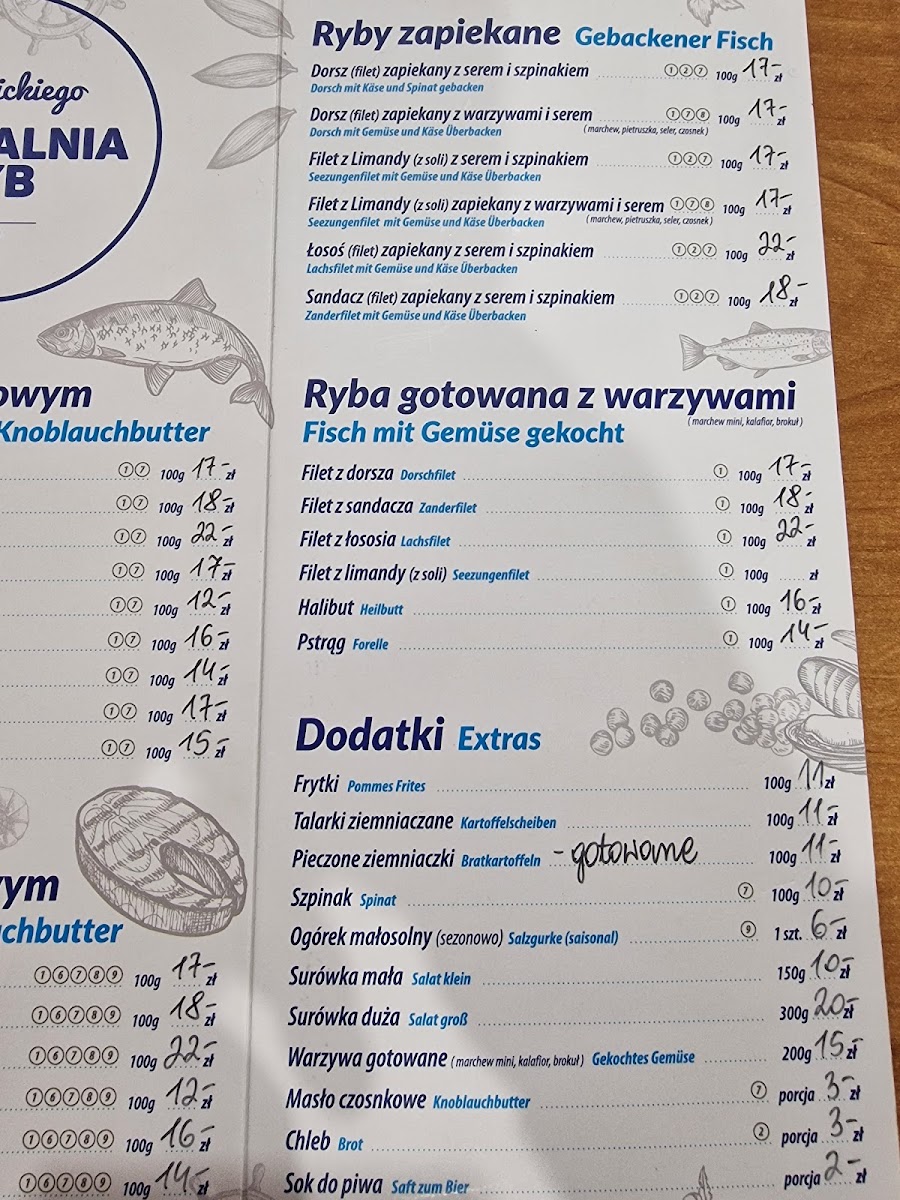 ickiego
ALNIA
YB
owym
Knoblauchbutter
①⑦ 100g 17,- zł
①⑦ 100g 18,- zł
①⑦ 100g 22,- zł
①⑦ 100g 17,- zł
①⑦ 100g 12,- zł
①⑦ 100g 16,- zł
①⑦ 100g 14,- zł
①⑦ 100g 17,- zł
①⑦ 100g 15,- zł
ym
chbutter
①⑥⑦⑧⑨ 100g 17,- zł
①⑥⑦⑧⑨ 100g 18,- zł
①⑥⑦⑧⑨ 100g 22,- zł
①⑥⑦⑧⑨ 100g 12,- zł
①⑥⑦⑧⑨ 100g 16,- zł
①⑥⑦⑧⑨ 100g 14,- zł
Ryby zapiekane Gebackener Fisch
Dorsz (filet) zapiekany z serem i szpinakiem ①②⑦ 100g 17,- zł
Dorsch mit Käse und Spinat gebacken
Dorsz (filet) zapiekany z warzywami i serem ①⑦⑧ 100g 17,- zł
Dorsch mit Gemüse und Käse Überbacken (marchew, pietruszka, seler, czosnek)
Filet z Limandy (z soli) z serem i szpinakiem ①②⑦ 100g 17,- zł
Seezungenfilet mit Gemüse und Käse Überbacken
Filet z Limandy (z soli) zapiekany z warzywami i serem ①⑦⑧ 100g 17,- zł
Seezungenfilet mit Gemüse und Käse Überbacken (marchew, pietruszka, seler, czosnek)
Łosoś (filet) zapiekany z serem i szpinakiem ①②⑦ 100g 22,- zł
Lachsfilet mit Gemüse und Käse Überbacken
Sandacz (filet) zapiekany z serem i szpinakiem ①②⑦ 100g 18,- zł
Zanderfilet mit Gemüse und Käse Überbacken
Ryba gotowana z warzywami
(marchew mini, kalafior, brokuł)
Fisch mit Gemüse gekocht
Filet z dorsza Dorschfilet ① 100g 17,- zł
Filet z sandacza Zanderfilet ① 100g 18,- zł
Filet z łososia Lachsfilet ① 100g 22,- zł
Filet z limandy (z soli) Seezungenfilet ① 100g zł
Halibut Heilbutt ① 100g 16,- zł
Pstrąg Forelle ① 100g 14,- zł
Dodatki Extras
Frytki Pommes Frites 100g 11 zł
Talarki ziemniaczane Kartoffelscheiben 100g 11,- zł
Pieczone ziemniaczki Bratkartoffeln - gotowane 100g 11,- zł
Szpinak Spinat ⑦ 100g 10,- zł
Ogórek małosolny (sezonowo) Salzgurke (saisonal) ⑨ 1 szt. 6,- zł
Surówka mała Salat klein 150g 10,- zł
Surówka duża Salat groß 300g 20,- zł
Warzywa gotowane (marchew mini, kalafior, brokuł) Gekochtes Gemüse 200g 15,- zł
Masło czosnkowe Knoblauchbutter ⑦ porcja 3,- zł
Chleb Brot ② porcja 3,- zł
Sok do piwa Saft zum Bier porcja 2,- zł